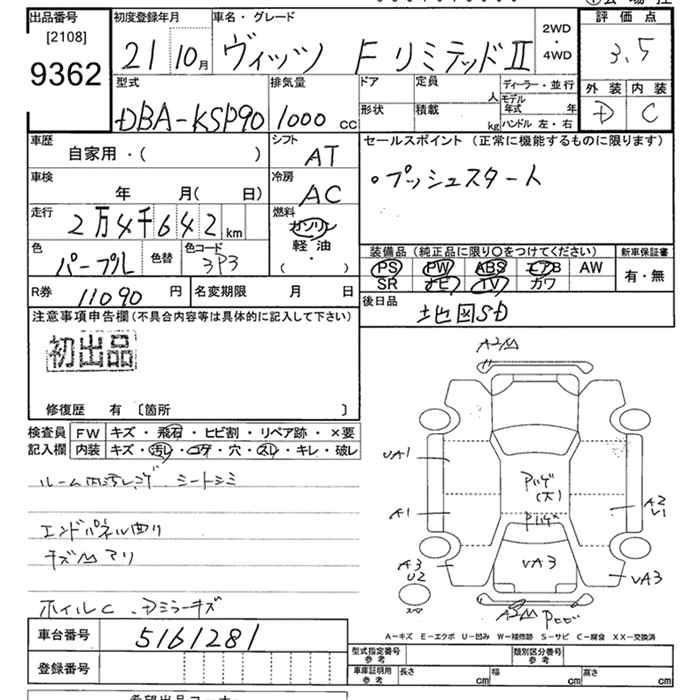 出品番号
[2108]
9362
初度登録年月
21 10月
車名・グレード
ヴィッツ FリミテッドⅡ
2WD
・
4WD
評価点
3.5
外装 内装
D C
型式
DBA-KSP90
排気量
1000 cc
ドア
形状
定員
人
積載
kg
ディーラー・並行
モデル年式 年
ハンドル 左・右
車歴
自家用・( )
シフト
AT
車検
年 月( 日)
冷房
AC
走行
2万4千642km
燃料
ガソリン
軽油
・( )
色
パープル
色替
色コード
3P3
R券
11090円
名変期限 月 日
セールスポイント (正常に機能するものに限ります)
。プッシュスタート
装備品 (純正品に限り○をつけてください)
PS PW ABS エアB AW
SR ナビ TV カワ
新車保証書
有・無
後日品
地図SD
注意事項申告欄(不具合内容等は具体的に記入して下さい)
初出品
修復歴 有 〔箇所 〕
検査員
記入欄
FW キズ・飛石・ヒビ割・リペア跡・×要
内装 キズ・汚れ・コゲ・穴・スレ・キレ・破レ
ルーム内汚レコゲ シートシミ
エンドパネル曲り
キズMアリ
ホイルC.Dミラーキズ
A2M
UA1
A1
A3
U2
Pハゲ
(大)
Pハゲ
UA3
A2
U1
UA3
A2M Pヒビ
スペア
A－キズ E－エクボ U－凹み W－補修跡 S－サビ C－腐食 XX－交換済
車台番号
5161281
登録番号
型式指定番号
参考
類別区分番号
参考
車庫証明用
参考
長さ cm
幅 cm
高さ cm